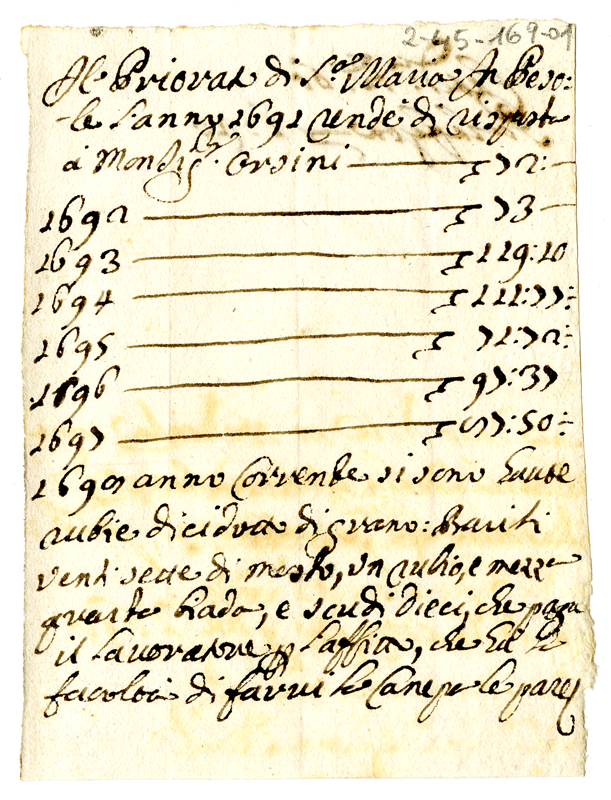 2-45-169-01
Il Priorat di S.a Maria In Peso:
le l'anno 1691 rendé di risposta
à Monsig.r Orsini — 72:—
1692 — 73 —
1693 — 119:10
1694 — 111:77:
1695 — 71:72:
1696 — 97:37
1697 — 87:50:
1698 anno Corrente si sono haute
rubie dicidotto di grano: Barili
venti sette di mosto, un rubio, e mezzo
quarto biada, e scudi dieci, che paga
il lavoratore p l'affitto, che hà
facoltà di farvi le Canepe le pare